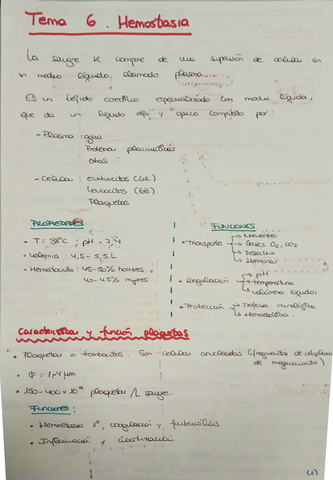 Tema 6. Hemostasia
La sangre se compone de una suspensión de células en
un medio líquido, llamado plasma.
Es un tejido conectivo especializado con matriz líquida,
que da un líquido rojo y opaco compuesto por:
- Plasma: agua
Proteínas plasmáticas
otras
- Células: eritrocitos (GR)
Leucocitos (GB)
Plaquetas
PROPIEDADES
• T = 38°C ; pH = 7,4
• Volemia: 4,5 - 5,5 L
• Hematocrito: 45-50% hombres
40-45% mujeres
FUNCIONES
• Transporte → Nutrientes
→ Gases O2, CO2
→ Desechos
→ Hormonas
• Regulación → pH
→ temperatura
→ volúmenes líquidos
• Protección → Defensa inmunológica
→ Hemostática.
Características y función plaquetas
• Plaquetas = trombocitos. Son células anucleadas (fragmentos de citoplasma
de megacariocito)
• Φ = 1-4 μm
• 150-400 x 10⁹ plaquetas /L sangre.
Funciones:
• Hemostasia 1ª, coagulación y fibrinólisis
• Inflamación y cicatrización.
(1)